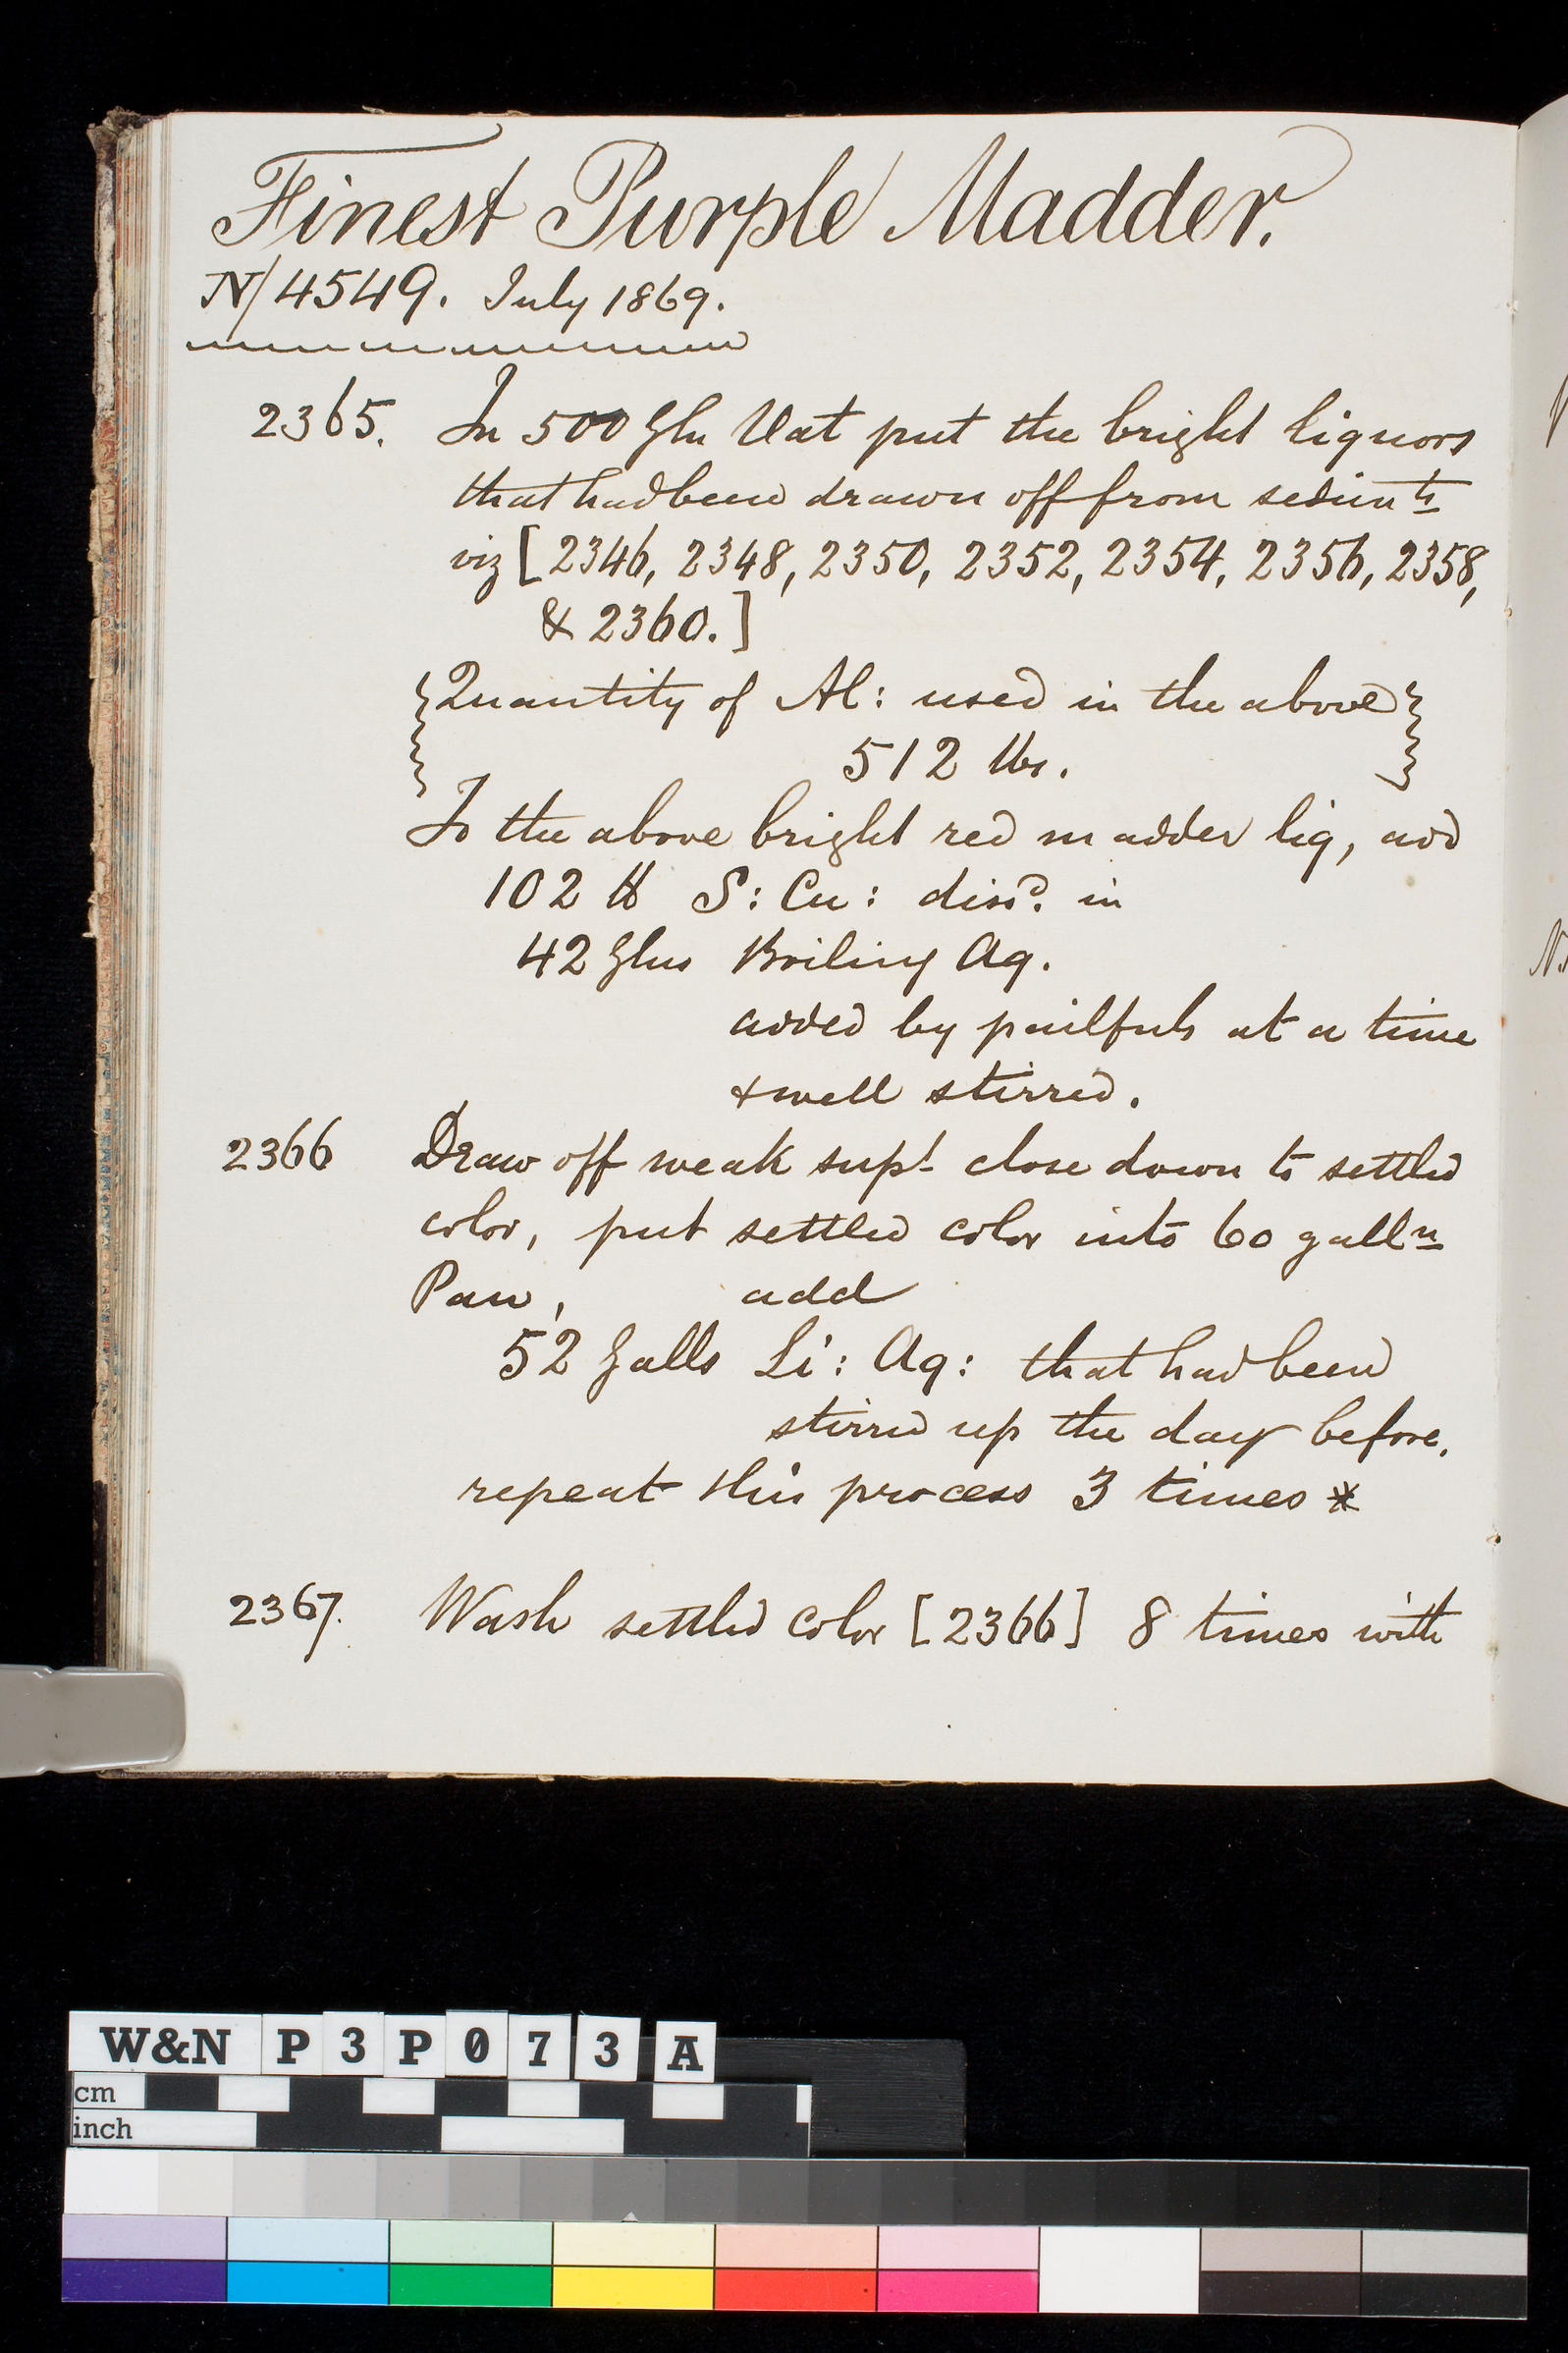 Finest Purple Madder.
N/4549. July 1869.
2365. In 500 Gln Vat put the bright liquors
that had been drawn off from sedimts
viz [2346, 2348, 2350, 2352, 2354, 2356, 2358,
& 2360.]
{Quantity of Al: used in the above}
512 lbs.
To the above bright red madder liq, add
102 lb S: Cu: dissd. in
42 Glns Boiling Aq.
added by pailfuls at a time
& well stirred.
2366 Draw off weak supt close down to settled
color, put settled color into 60 galln
Pan, add
52 Galls Li: Aq: that had been
stirred up the day before.
repeat this process 3 times *
2367. Wash settled color [2366] 8 times with
W&N P3P073A
cm
inch